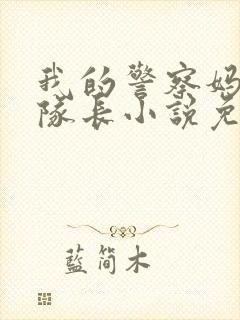 我的警察妈
隊長小説免
藍简木